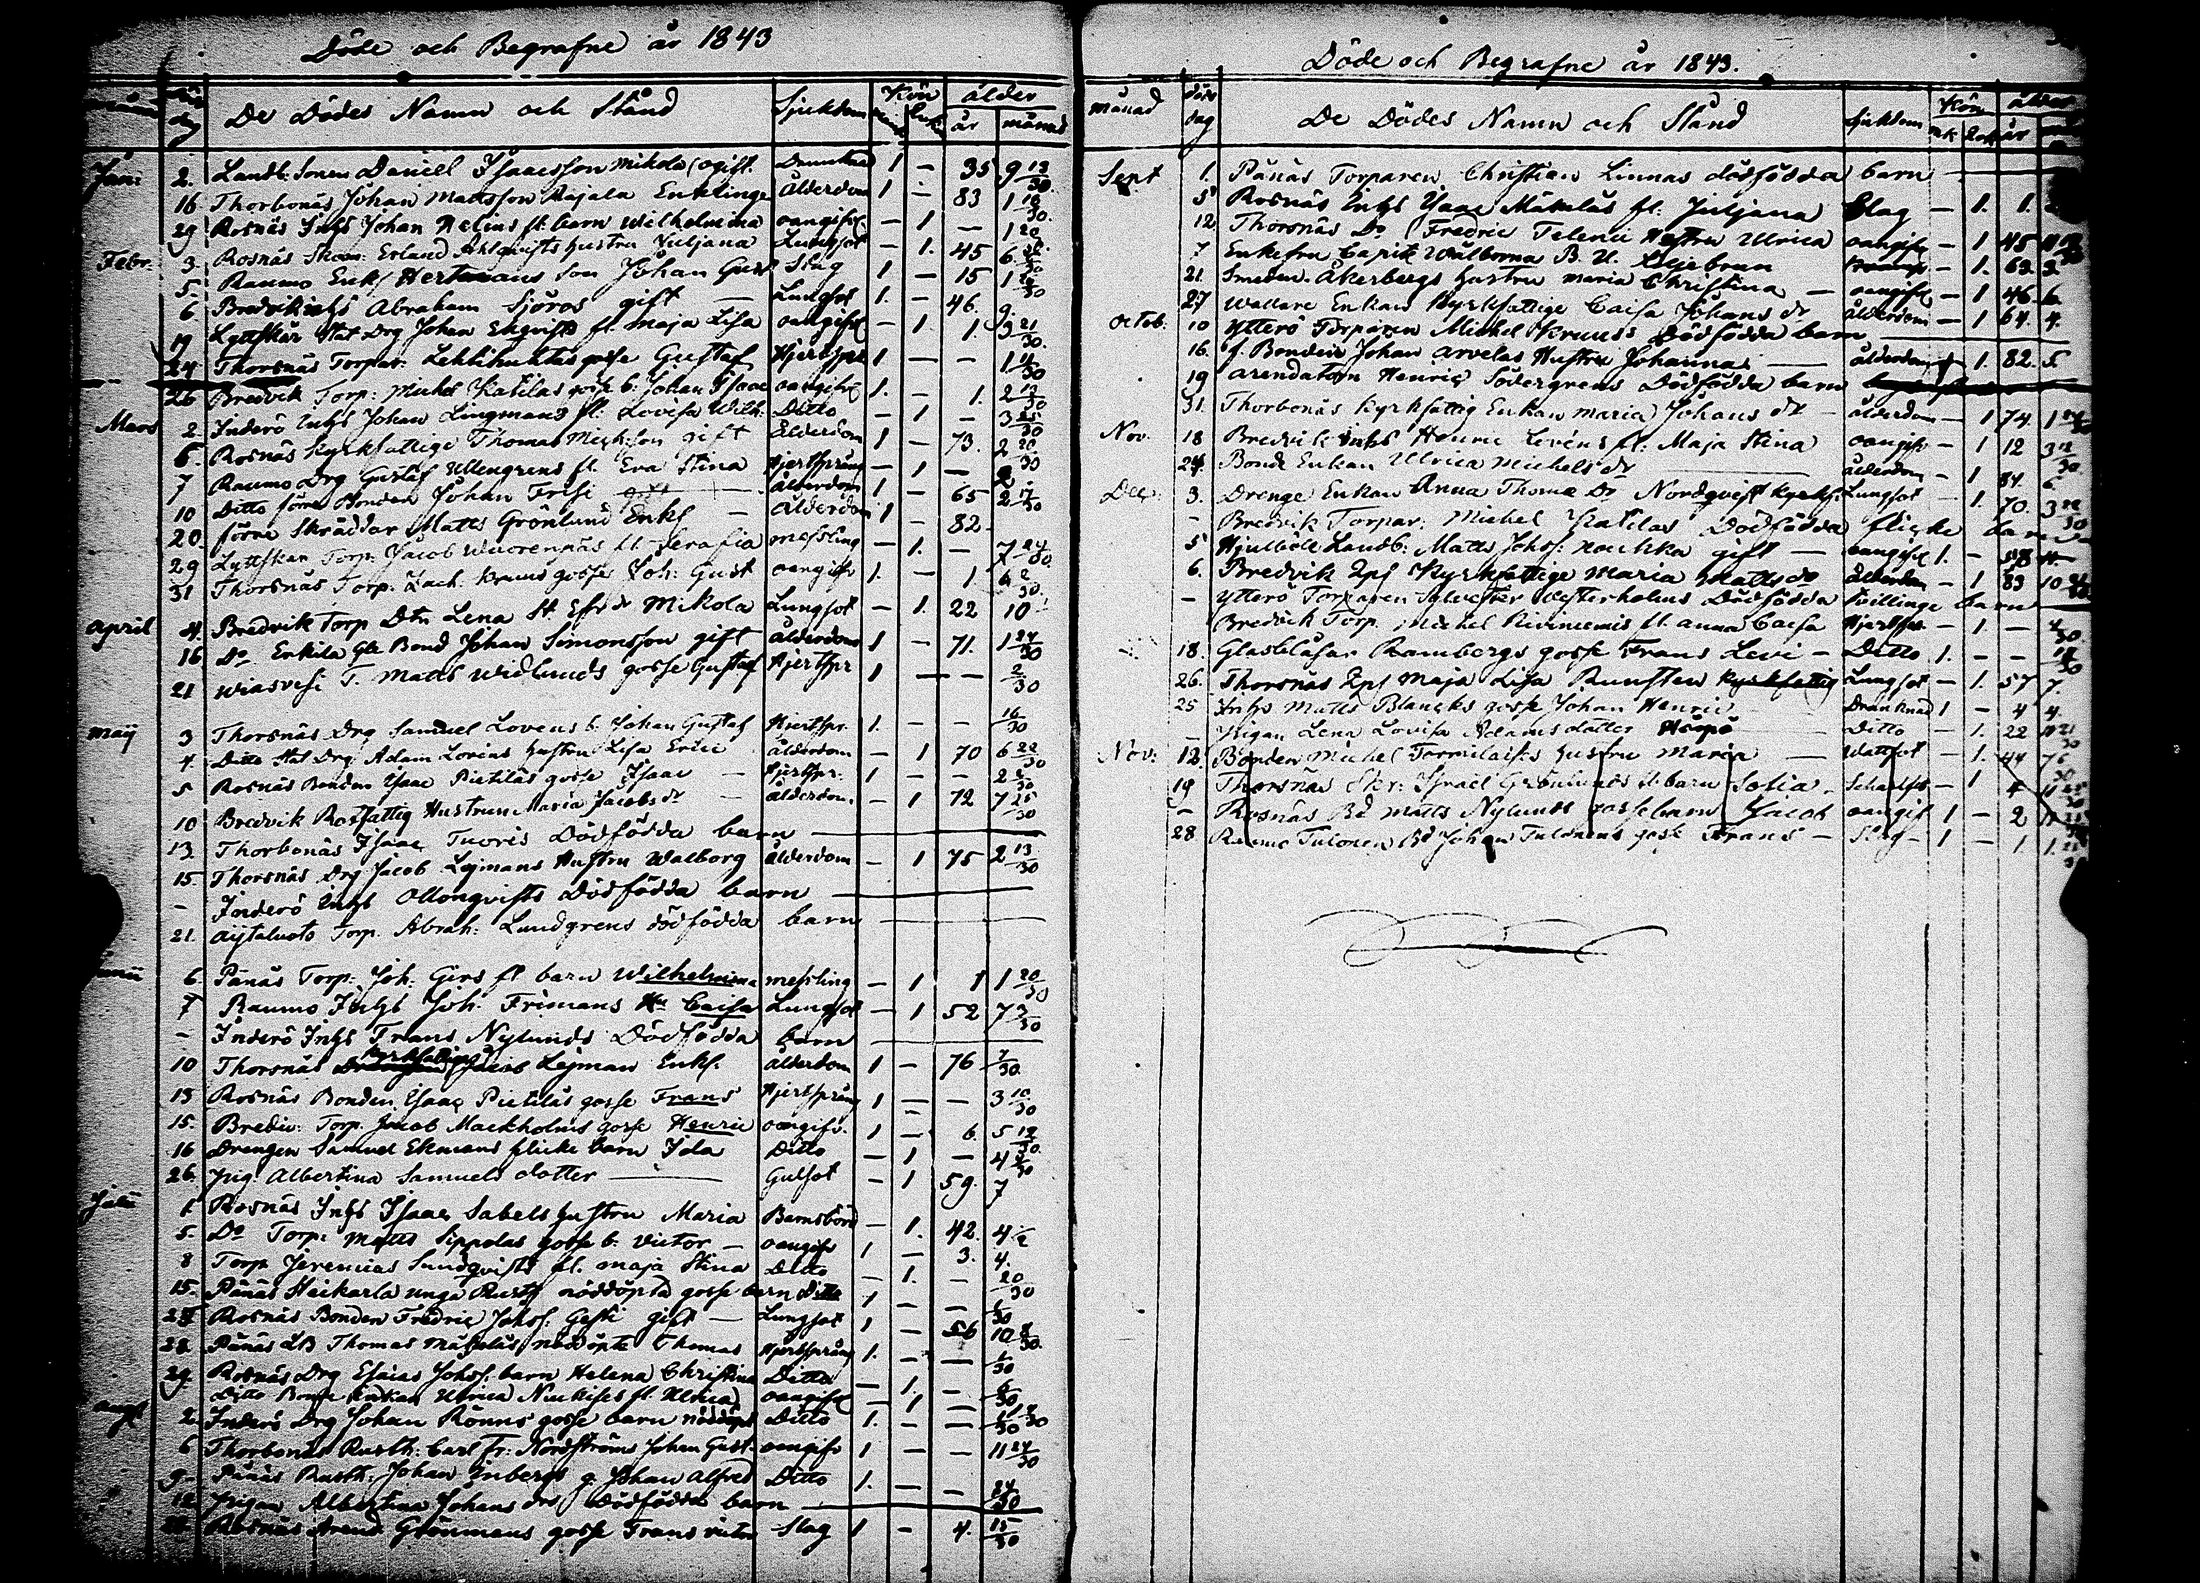 Döde och Begrafne år 1843
De Dödes Namn och Stånd Sjukdom Kön ålder
år månad
Jan: 2. Landb: Sonen Daniel Isaacsson Mikola ogift. Drunknad 1 – 35 9 13/30.
16 Thorbonäs Johan Mattsson Rajala Enklinge ålderdom 1 – 83 1 18/30.
29 Rosnäs Inhs Johan Relins fl. barn Wilhelmina oangifvet – 1 – 1 20
Febr: 3. Rosnäs Skom: Erland Ahlqvists hustru Juljana Lungsot – 1. 45 6.
5. Raumo Enkl Hertmans Son Johan Gust Slag 1 – 15 1
6 Bredvik inhs Abraham Sjöros gift – Lungsot 1. – 46. 9.
19 Lyttskär Stat Drg Johan Ekqvists fl. Maja Lisa oangifvet – 1 1. 3 21/30.
24 Thorsnäs Torpar: Lehtihuhtas gosse Gustaf Hjertspr 1 – – 1 11/30
26 Bredvik Torp: Michel Katilas gosse b: Johan Isaac oangifvet 1. – 1. 2 13/30
Mars 2. Inderö Inhs Johan Lingmans fl. Lovisa Wilh: Ditto – 1 – 3 25/30
5. Rosnäs Kyrkfattige Thomas Michson gift Ålderdom 1 – 73. 2 20/30
7 Raumo Drg Gustaf Ullengrens fl. Eva Stina Hjertsprång – 1 – 2
10 Ditto förre Bonden Johan Frisi – ålderdom 1 – 65 2 17/30
20. förne Skräddar Matts Grönlund Enkl – ålderdom 1 – 82.
29 Lyttskär Torp: Jacob Wuorenpäs fl. Serafia messling – 1. – 7 24/30.
31 Thorsnäs Torp. Zach. Kruus gosse Joh: Gust oangifv 1. – 1. 6 2/30.
April 4. Bredvik Torp Dtr Lena St. Esfr dr Mikola Lungsot – 1. 22 10
16 Do Enkila Gle Bond Johan Simonsson gift – ålderdom 1 – 71. 1 24/30
21 Wiasvesi T. Matts Widlunds gosse Gustaf Hjertspr 1 – – 2/30
Maij 3 Thorsnäs Drg Samuel Lovens b. Johan Gustaf Hjertspr. 1. – – 16/30
4. Ditto Stat Drg Adam Lovins hustru Lisa Erici ålderdom – 1 70 6 22/30
5 Rosnäs Bonden Isaac Pietiläs gosse Isaac – Hjertspr: 1 – – 2 2/30
10 Bredvik Rotfattig Hustrun Maria Jacobs dr – ålderdom. – 1 72 7 25/30
13. Thorbonäs Isaac Tuoris Dödfödda barn
15. Thorsnäs Drg Jacob Lejmans Hustru Walborg ålderdom – 1 75 2 13/30
– Inderö Inhs Ollonqvists Dödfödda barn
21. Aijtaluoto Torp. Abrah: Lundgrens dödfödda barn
Junii 6. Pänäs Torp: Joh: Girs fl barn Wilhelmina messling – 1 1 1 20/30
7 Raumo Inhs Joh. Frimans Hu Caisa Lungsot – 1 52 7 3/30
– Inderö Inhs Frans Nylunds Dödfödda barn
10 Thorsnäs Kyrkfattige Jacob Lejman Enkl. ålderdom 1 – 76 7/30.
13 Rosnäs Bonden Isaac Pietiläs gosse Frans Hjertsprång 1 – – 3 10/30
15. Bredv: Torp. Jacob Mackholms gosse Henric oangifv. 1 – 6. 5 19/30.
16 Drengen Samuel Ekmans flicke barn Ida Ditto – 1 – 4 3/30
26. Pig. Albertina Samuels dotter – Gulsot – 1 59. 7
Julii 1. Rosnäs Inhs Isaac Sabels hustru Maria Barnsbörd – 1. 42. 4
5. Do Torp: Matts Sippolas gosse b. Victor – oangifv 1 – 3. 4.
8 Torp Jeremias Sundqvists fl. Maja Stina Ditto – 1. – 20/30
15. Pänäs Heikarla unga Rusth nöddöpta gosse barn Ditto 1 – –
24. Rosnäs Bonden Fredric Johss: Gesti gift – Lungsot 1 – 56 10 8/30.
28. Pänäs LB Thomas Mäkeläs nöddöpte Thomas Hjertsprång 1. – – 1/30
29. Rosnäs Drg Esaias Johss. barn Helena Christina Ditto – 1. – 6/30
Ditto Bonde Enkan Ulrica Niukises fl. Ulrica oangifvet – 1 –
Aug 2. Inderö Drg Johan Rönns gosse barn nöddöpt Ditto 1. – –
6 Thorbonäs Rusth: Carl Fr: Nordströms Johan Gust. oangifv 1 – – 11 27/30
9. Pänäs Rusth. Johan Inbergs g. Johan Alfred Ditto 1. – – 24/30
12 Pigan Albertina Johans drs Dödfödda barn
Rosnäs Arend Grönmans gosse Frans Victor Slag 1 – 4. 15/30
Döde och Begrafne år 1843.
månad döds dag De Dödes Namn och Stånd Sjukdom Kön ålder
mk år
Sept 1. Pänäs Torparen Christian Linnas dödfödda barn
5 Rosnäs Inhs Isaac Mäkeläs fl: Juljana Slag – 1. 1.
12 Thorsnäs Dr Fredric Telenii Hustru Ulrica oangifvet – 1 45
7 Enkefru Capit: Walborna B. U. Liljebrun – 1. 63. 3.
21. Smeden Åkerbergs hustru Maria Christina – oangifvet – 1 46. 6.
27 Wallare Enkan Kyrkfattige Caisa Johans dr ålderdom – 1 64. 4.
Octob. 10 Ytterö Torparen Michel Kruuss Dödfödda barn
16. f. Bonden Johan Arvelas Hustru Johanna – ålderdom 1 82. 5.
19 Arendatorn Henric Södergrens Dödfödda barn
31. Thorbonäs Kyrkfattig Enkan Maria Johans dr – ålderdom – 1 74. 1
Nov. 18 Bredvik Inhs Henric Levéns fl: Maja Stina oangifv – 1 12 3 12/30
24. Bonde Enkan Ulrica Michels dr ålderdom – 1 84. 6
Dec: 3. Drenge Enkan Anna Thoma Dr Nordqvist Kyrkf: Lungsot – 1. 70. 3
– Bredvik Torpar: Michel Katilas Dödfödda flicke barn
5 Hjulböle Landb: Matts Johss: Nochka gift – oangifvet 1. – 58
6. Bredvik Kyrkfattige Maria Matts dr ålderdom – 1 83 10
– Ytterö Torparen Sylvester Westerholms Dödfödda Tvillinge barn
Bredvik Torp. Michel Riviniemis fl. Anna Caisa Hjertspr. – 1. – 4/30
18. Glasblåsar Rambergs gosse Frans Levi – Ditto 1. – – 18/30
26. Thorsnäs Maja Lisa Runsten Kyrkfattig Lungsot – 1. 57 7.
25 Inhs Matts Blancks gosse Johan Henric Drunknad 1 – 4 4.
– Pigan Lena Lovisa Adams dotter Ditto – 1. 22
Nov: 12. Bonden Michel Tommilas hustru Maria – Wattsot – 1. 44 7
19 Thorsnäs Skr: Israel Grönlunds fl. barn Sofia – 1 4
– Rosnäs Bd Matts Nylunds gosse barn Jacob oangif 1 – 2
28. Raumo Tulonen Bd Johan Tulonens gosse Frans – Slag – 1 – 1 1.